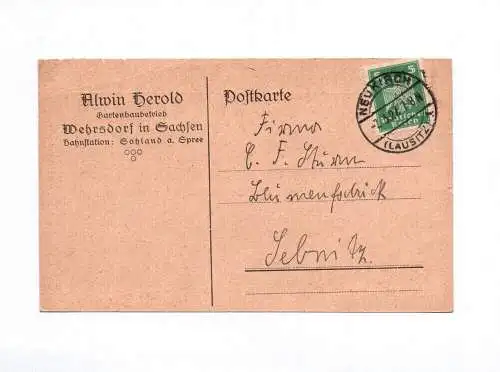 Alwin Herold
Gartenbaubetrieb
Wehrsdorf in Sachsen
Bahnstation: Sohland a. Spree
Postkarte
5
NEUKIRCH
(LAUSITZ)
Firma
C. F. Sturm
Blumenfabrick
Sebnitz.